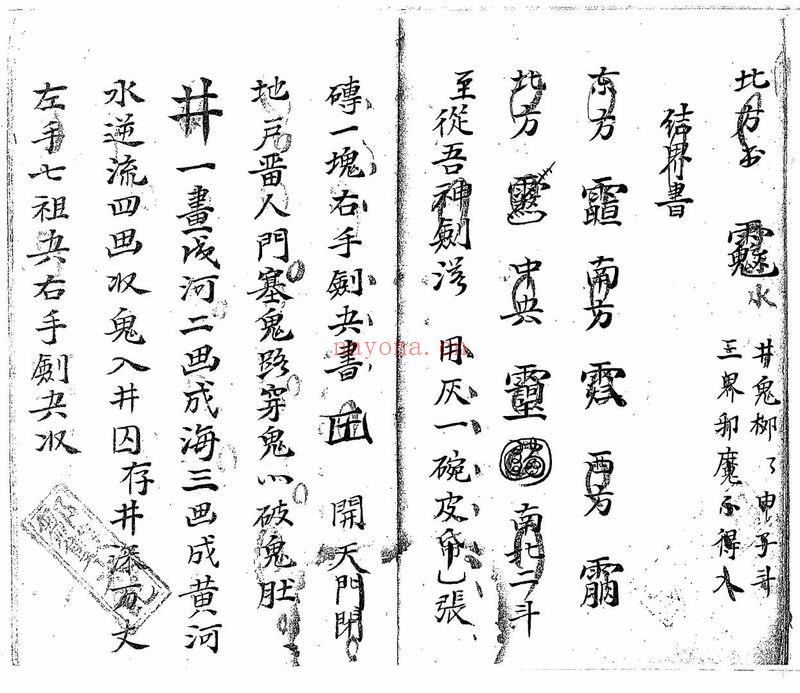 北方书 水 井鬼柳 申子斗
三界邪魔不得入
结界書
东方 南方 西方
北方 中央 南北二斗
至從吾神劍 用灰一碗皮帋乙張
磚一塊右手劍夬書 開天門閉
地户畱人門塞鬼路穿鬼心破鬼肚
井一畫成河二画成海三画成黄河
水逆流四画収鬼入井囚存井深万丈
左手七祖夬右手劍夬収
nayona.cn